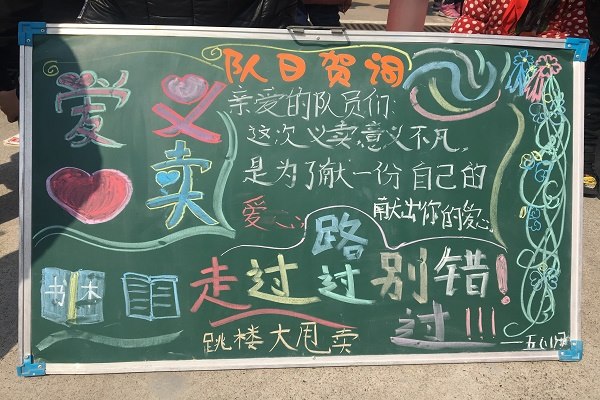 爱义
卖
队日贺词
亲爱的队员们:
这次义卖,意义不凡,
是为了献一份自己的
爱心, 献出你的爱心
走过路过别错!
过!!!
书本
跳楼大甩卖
—五(1)班